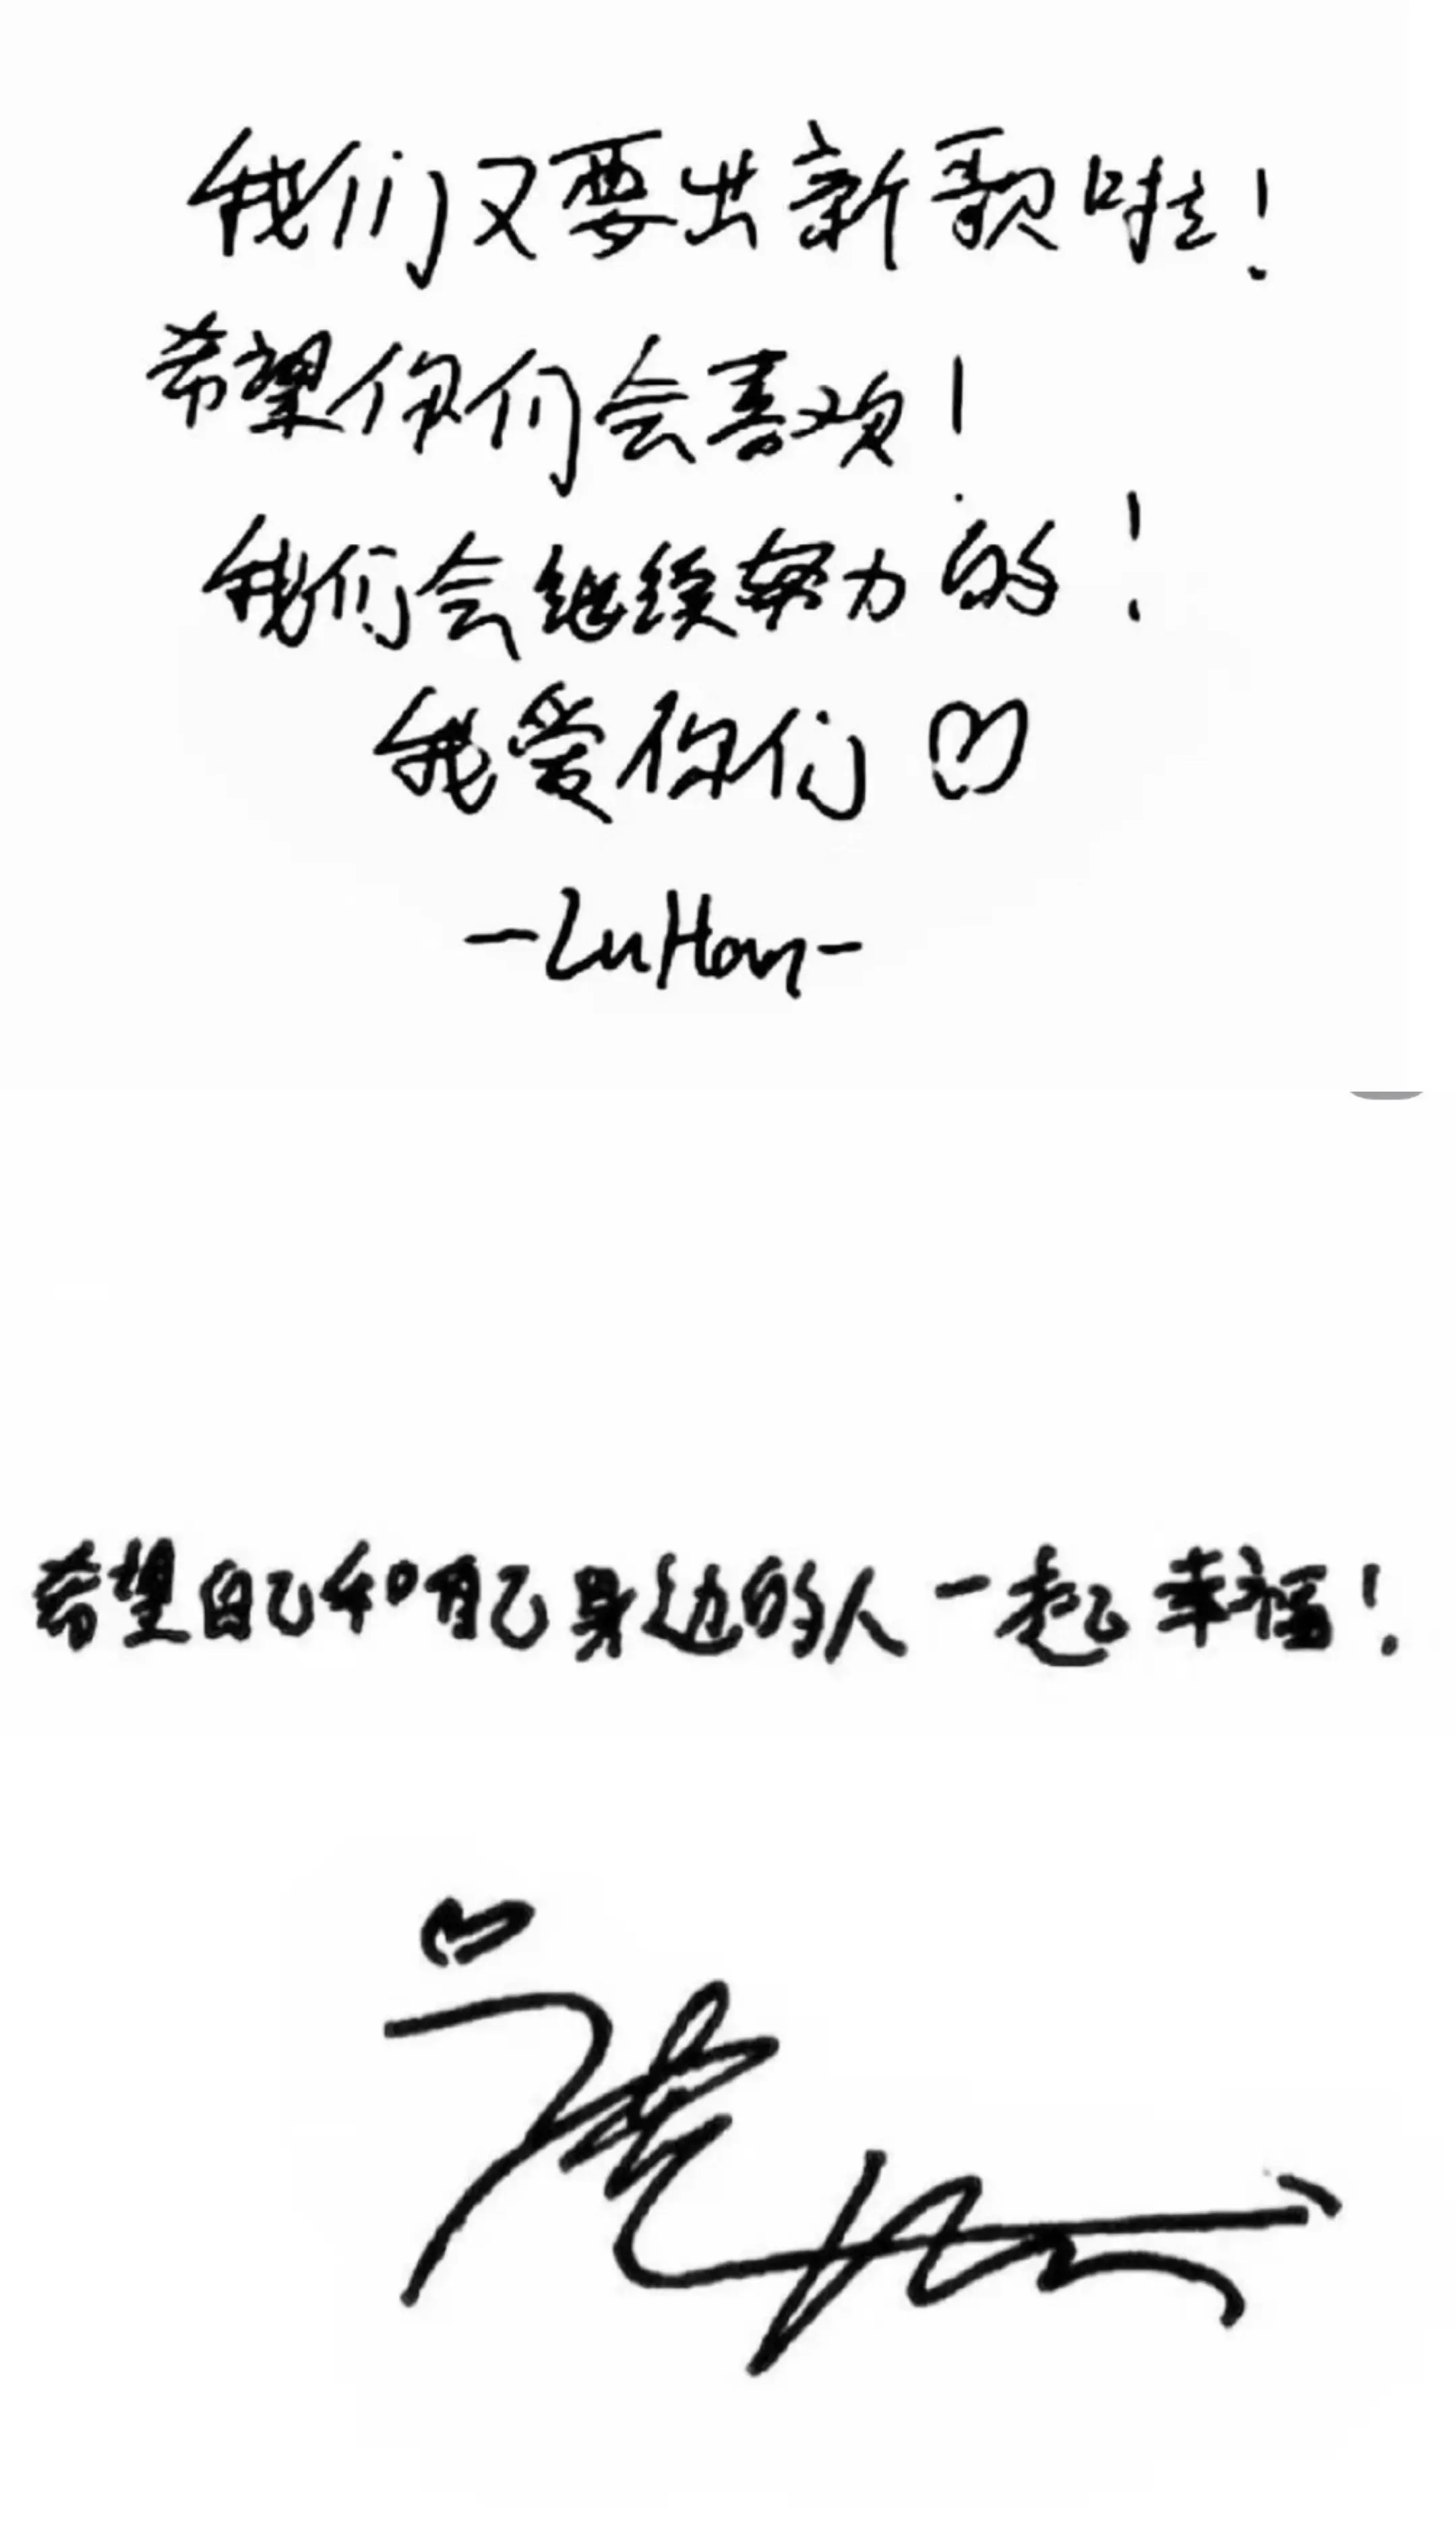 我们又要出新歌啦!
希望你们会喜欢!
我们会继续努力的!
我爱你们♡
-LuHan-
希望自己和自己身边的人一起幸福!